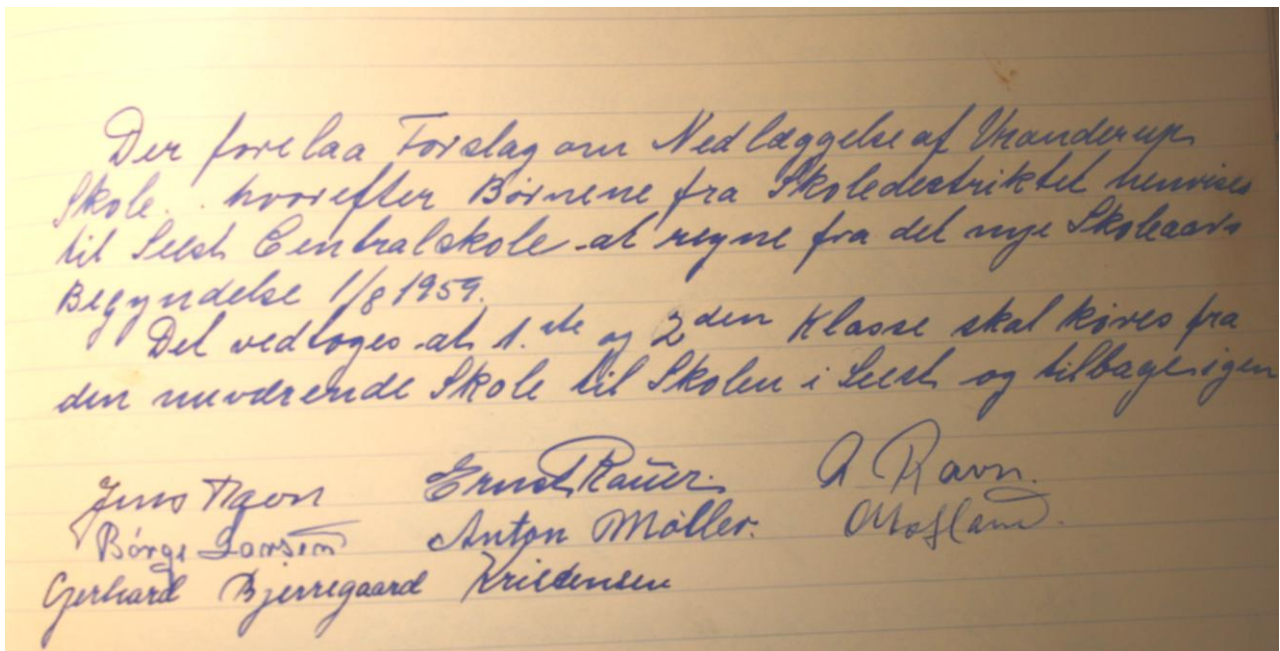 Der forelaa Forslag om Nedlæggelse af Vranderup
Skole. hvorefter Børnene fra Skoledestriktet henvises
til Seest Centralskole at regne fra det nye Skoleaars
Begyndelse 1/8 1959.
Det vedtoges at 1.ste og 2den Klasse skal køres fra
den nuværende Skole til Skolen i Seest og tilbage igen
Jens Ravn Ernst A Ravn.
Børge Larsen Anton Møller.
Gerhard Bjerregaard Kristensen